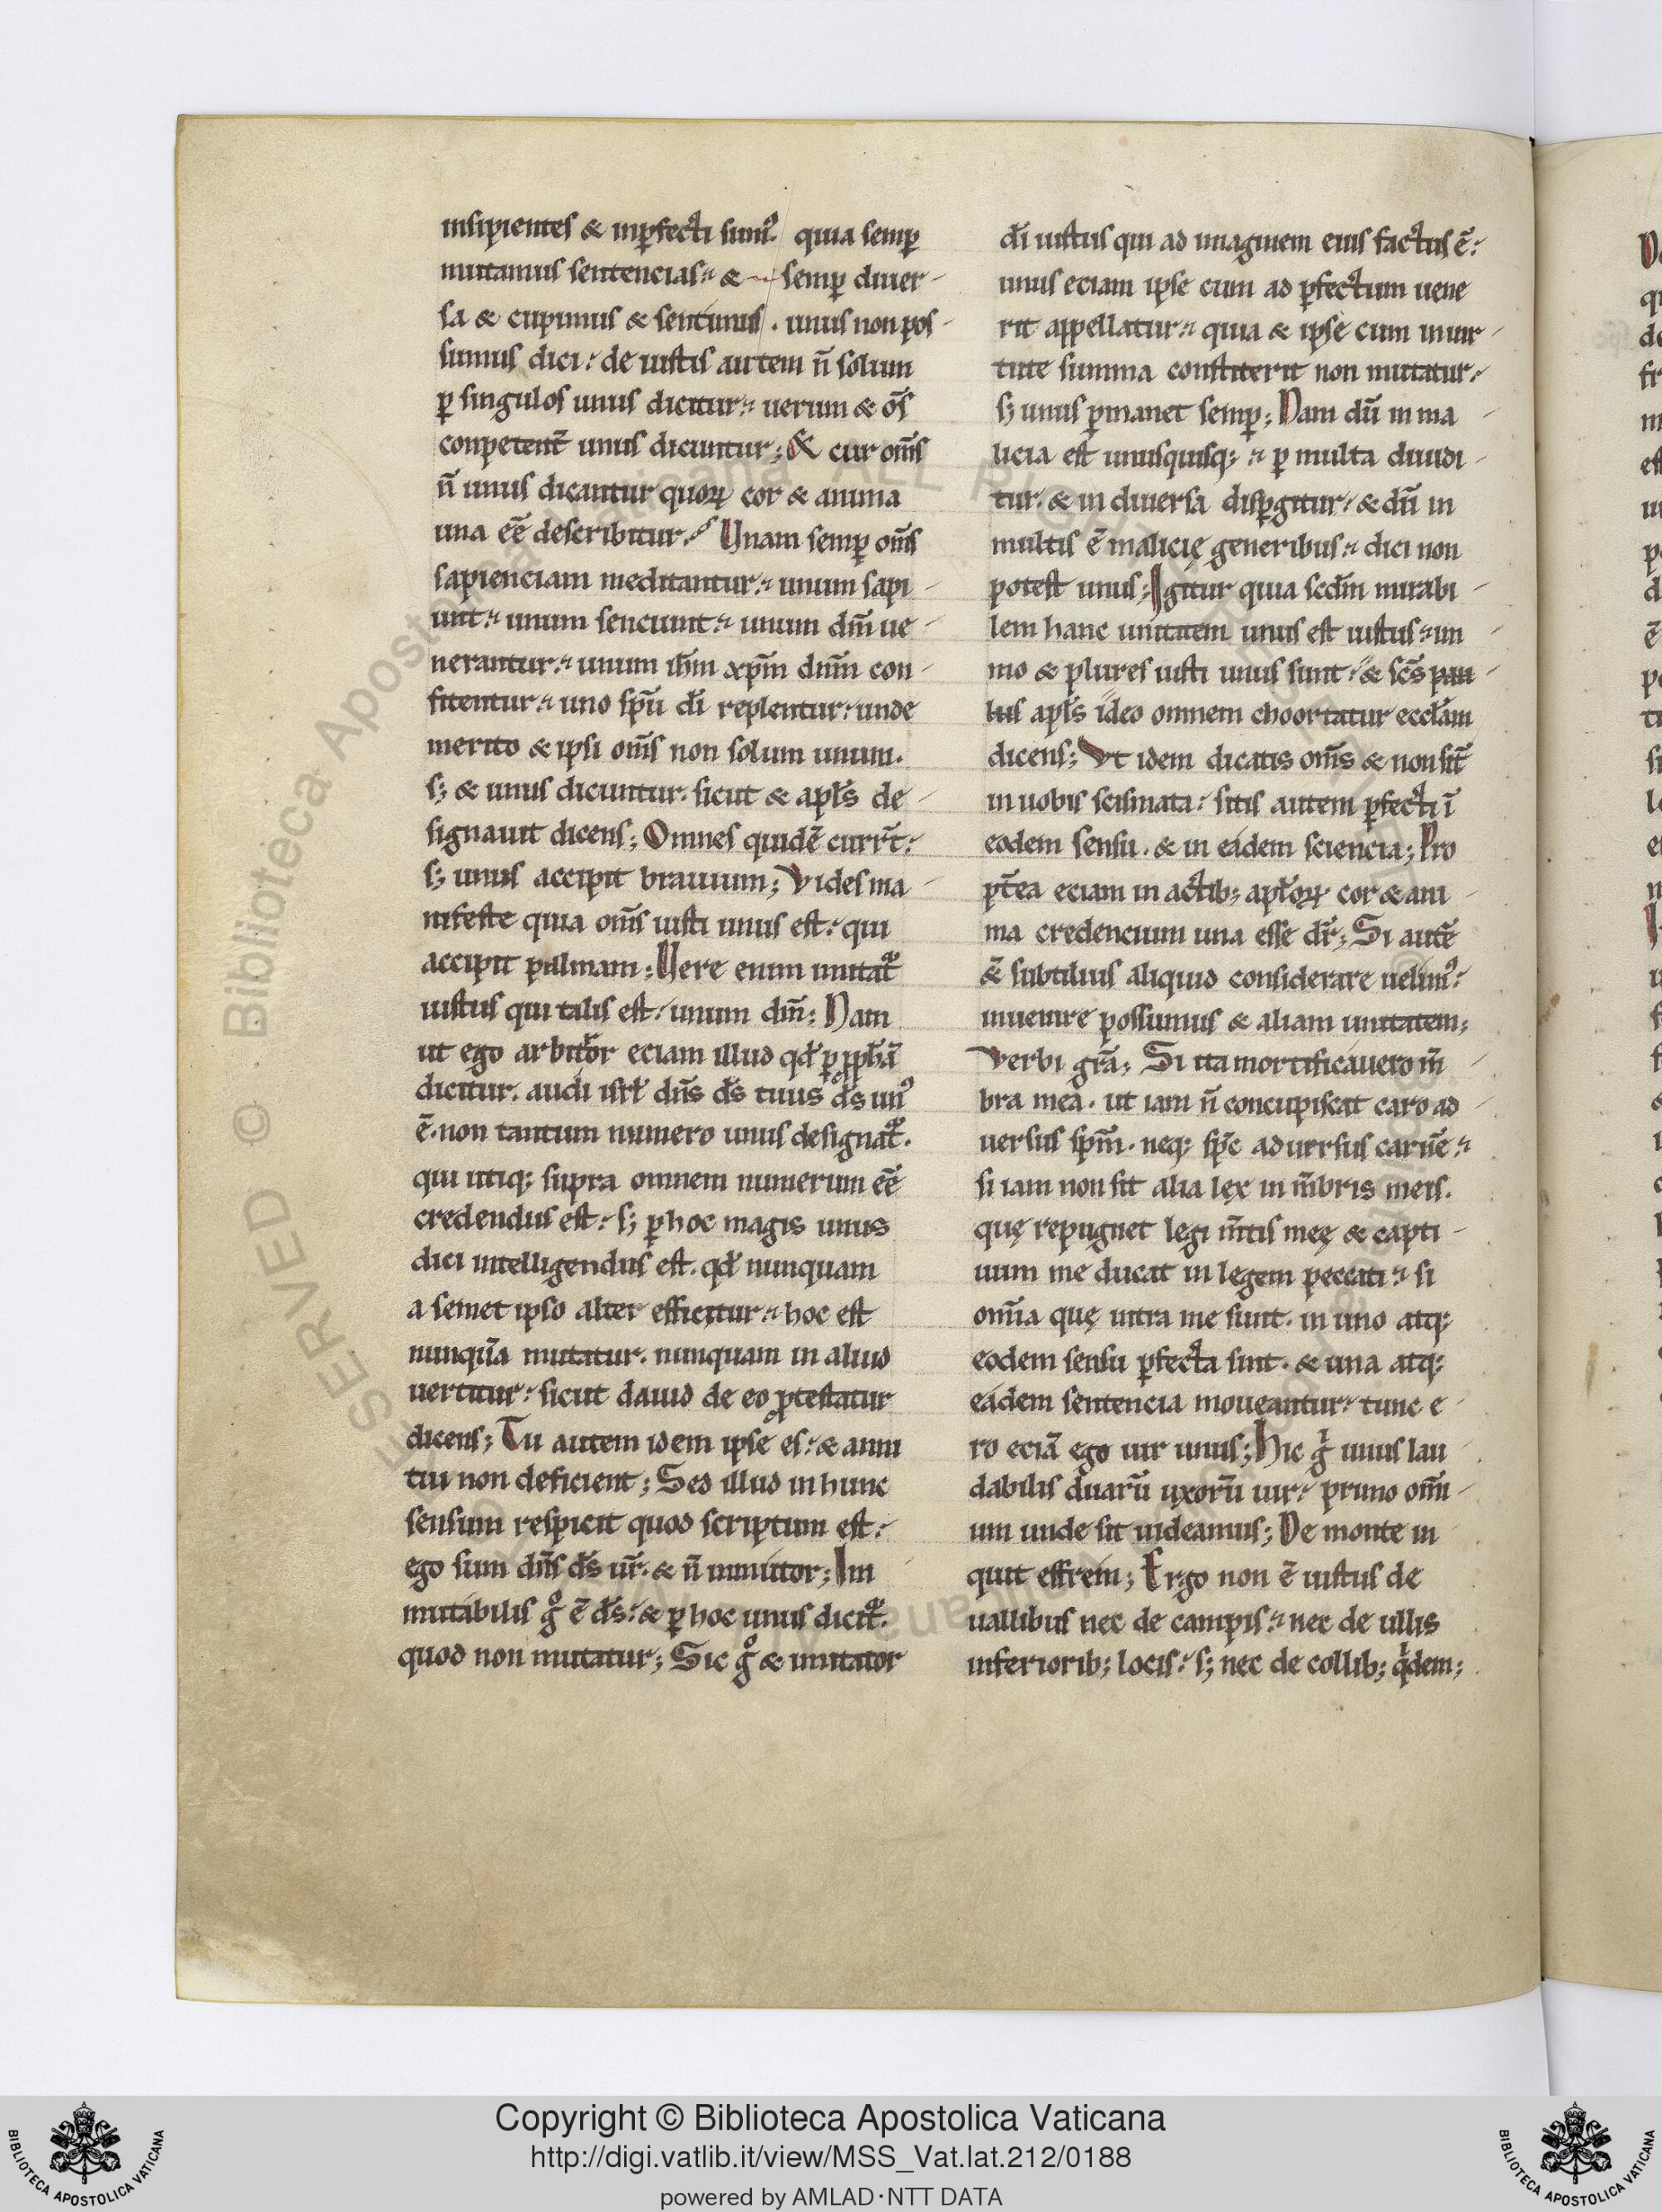 insipientes & inꝑfecti sumꝰ. quia semꝑ
mutamus sentencias & semꝑ diuer-
sa & cupimus & sentimus. unus non pos-
sumus dici: de iustis autem n̄ solum
ꝑ singulos unus dicitur: uerum & om̄s
conpetent̄ unus dicuntur; & cur om̄s
n̄ unus dicantur quoꝝ cor & anima
una ee̅ describitur? Unam semꝑ om̄s
sapienciam meditantur: unum sapi-
unt: unum senciunt: unum dm̄ ue-
nerantur: unum ih̄m xp̄m dn̄m con-
fitentur: uno sp̄u di̅ replentur: unde
merito & ipsi om̄s non solum unum.
s; & unus dicuntur. sicut & apl̄s de-
signauit dicens; Omnes quide̅ curr̄t:
s; unus accipit brauium; Vides ma-
nifeste quia om̄s iusti unus est: qui
accipit palmam; Vere enim imitat᷑
iustus qui talis est: unum dm̄; Nam
ut ego arbitror eciam illud qd̄ ꝑ ꝓph̄a̅
dicitur. audi isrl̄ dn̄s ds̄ tuus ds̄ unꝰ
e̅. non tantum numero unus designat᷑.
qui utiq; supra omnem numerum ee̅
credendus est: s; ꝑ hoc magis unus
dici intelligendus est. qd̄ nunquam
a semet ipso alter efficitur: hoc est
nunqua̅ mutatur. nunquam in aliud
uertitur: sicut dauid de eo ꝓtestatur
dicens; Tu autem idem ipse es: & anni
tui non deficient; Sed illud in hunc
sensum respicit quod scriptum est:
ego sum dn̄s ds̄ ur̄. & n̄ inmutor; Im
mutabilis gͦ e̅ ds̄: & ꝑ hoc unus dicit᷑.
quod non mutatur; Sic gͦ & imitator
di̅ iustus qui ad imaginem eius factus e̅:
unus eciam ipse cum ad ꝑfectum uene
rit appellatur: quia & ipse cum in uir-
tute summa constiterit non mutatur:
s; unus ꝑmanet semꝑ; Nam du̅ in ma-
licia est unusquisq; ꝑ multa diuidi-
tur. & in diuersa disꝑgitur: & du̅ in
multis e̅ malicię generibus: dici non
potest unus; Igitur quia scdm̄ mirabi-
lem hanc unitatem unus est iustus: im-
mo & plures iusti unus sunt: & sc̄s pau-
lus apl̄s ideo omnem choortatur eccl̄am
dicens; Vt idem dicatis om̄s & non sīt
in uobis scismata: sitis autem ꝑfecti ī
eodem sensu. & in eadem sciencia; Pro
pt̄ea eciam in actib; apl̄oꝝ cor & ani-
ma credencium una esse dr̄; Si aute̅
& subtilius aliquid considerare uelimꝰ:
inuenire possumus & aliam unitatem;
Verbi gra̅; Si ita mortificauero m̄
bra mea. ut iam n̄ concupiscat caro ad-
uersus sp̄m. neq; sp̄c aduersus carne̅:
si iam non sit alia lex in m̄bris meis.
quę repugnet legi m̄tis meę & capti-
uum me ducat in legem peccati: si
om̄ia quę intra me sunt. in uno atq;
eodem sensu ꝑfecta sint. & una atq;
eadem sentencia moueantur: tunc e-
ro ecia̅ ego uir unus; Hic gͥ unus lau
dabilis duaru̅ uxoru̅ uir: primo om̄i-
um unde sit uideamus; De monte in
quit effrem; Ergo non e̅ iustus de
uallibus nec de campis: nec de ullis
inferiorib; locis: s; nec de collib; qͥdem;
Copyright © Biblioteca Apostolica Vaticana
http://digi.vatlib.it/view/MSS_Vat.lat.212/0188
powered by AMLAD·NTT DATA
BIBLIOTECA APOSTOLICA VATICANA
BIBLIOTECA APOSTOLICA VATICANA